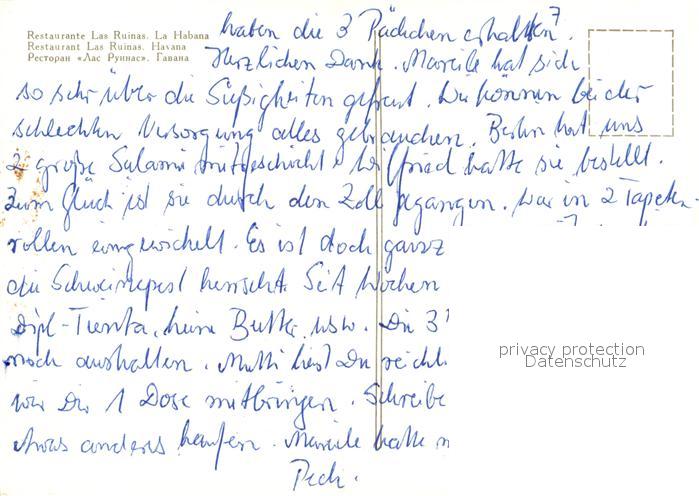 Restaurante Las Ruinas. La Habana
Restaurant Las Ruinas. Havana
Ресторан «Лас Руинас». Гавана
haben die 3 Päckchen erhalten.
Herzlichen Dank. Mareile hat sich
so sehr über die Süßigkeiten gefreut. Wir können bei der
schlechten Versorgung alles gebrauchen. Berlin hat uns
2 große Salami mitgeschickt. Wilfried hatte sie bestellt.
Zum Glück ist sie durch den Zoll gegangen. War in 2 Tapeten-
rollen eingewickelt. Es ist doch ganz
die Schweinepest herrscht. Seit Wochen
keine Butter usw. Die 3
noch aushalten. Mutti hast Du
wir Dir 1 Dose mitbringen. Schreibe
etwas anderes kaufen. Mareile hatte
Pech.
privacy protection
Datenschutz